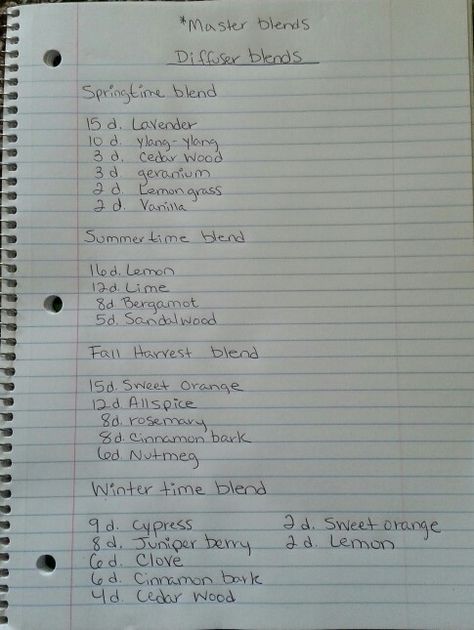 *Master blends
Diffuser blends
Springtime blend
15 d. Lavender
10 d. ylang-ylang
3 d. cedar wood
3 d geranium
2 d Lemon grass
2 d. Vanilla
Summer time blend
16d. Lemon
12d. Lime
8d Bergamot
5d. Sandalwood
Fall Harvest blend
15d. Sweet orange
12d Allspice
8d. rosemary
8d. Cinnamon bark
6d. Nutmeg
Winter time blend
9 d. Cypress
8 d. Juniper berry
6 d. Clove
6 d. Cinnamon bark
4 d. Cedar wood
2 d. Sweet orange
2 d. Lemon